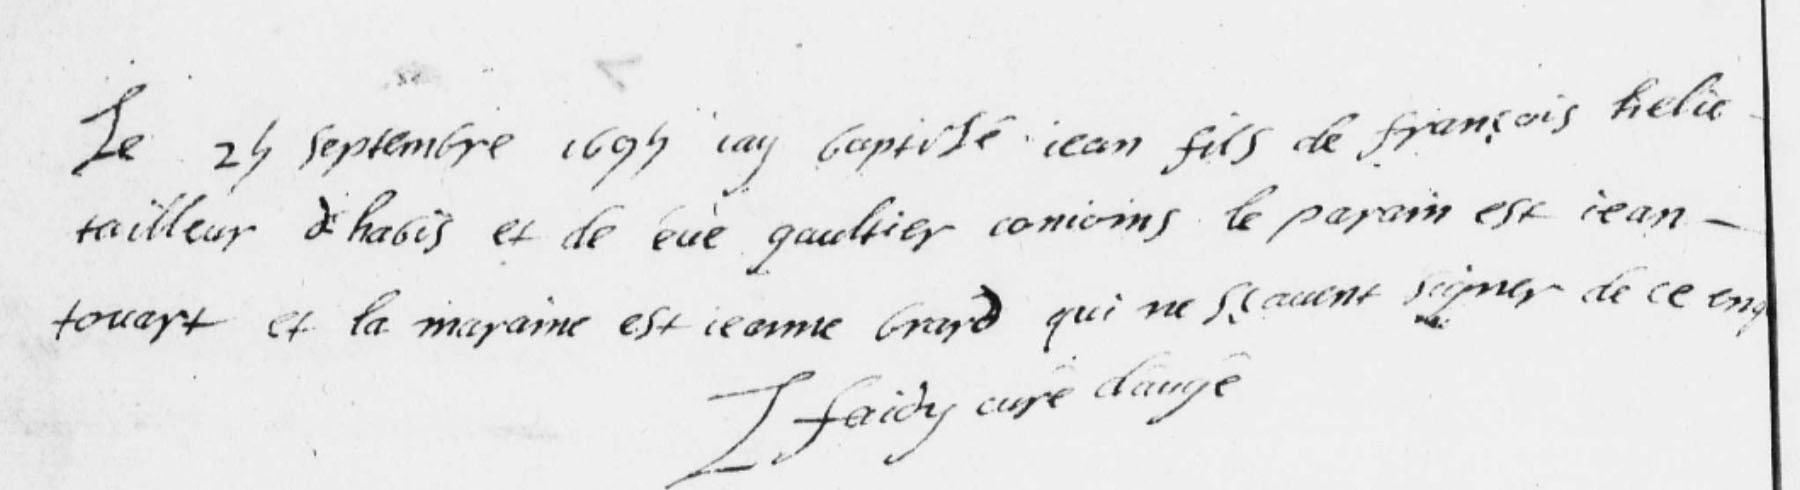 Le 24 septembre 1694 iay baptisé iean fils de françois helie
tailleur d'habis et de éue gaultier conioins le parain est iean
touart et la maraine est ieanne brard qui ne sçauent signer de ce enq
L faidy curé d'augé